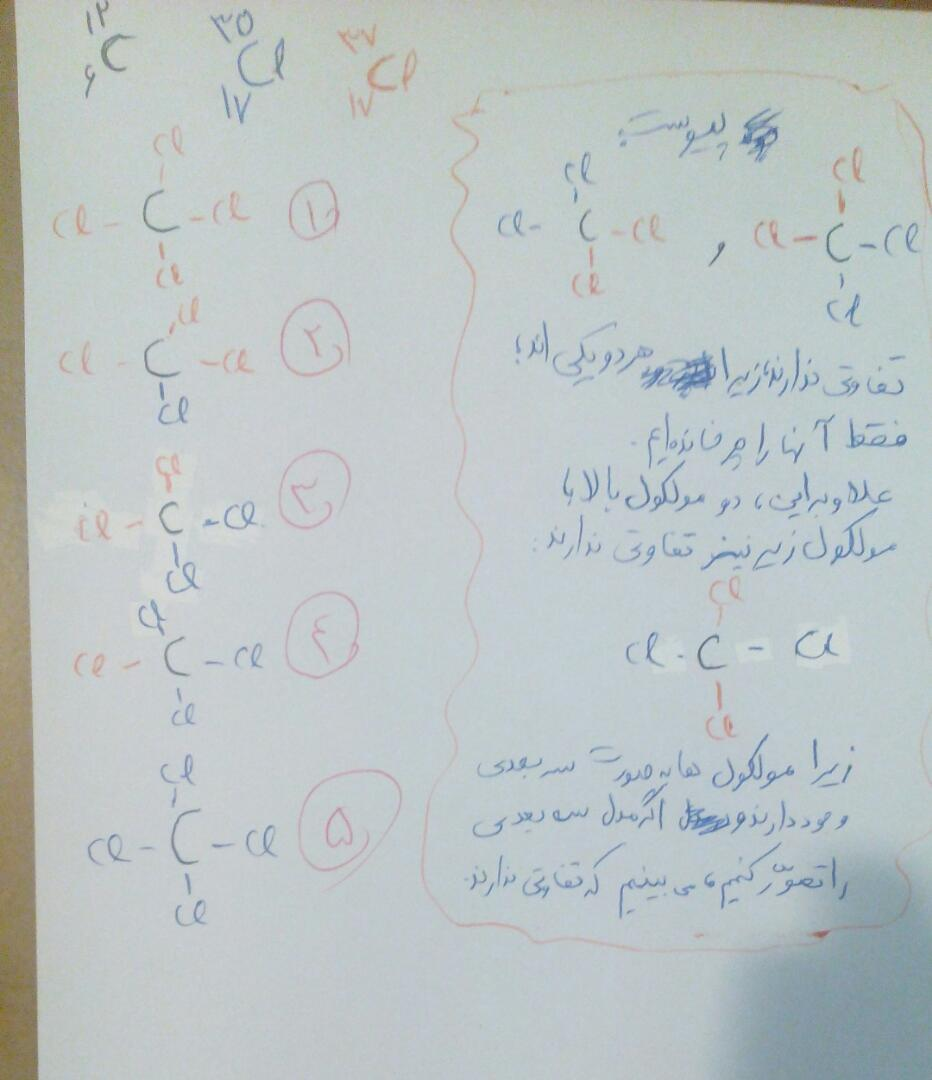 ۱۲ ۳۵ ۳۷
C Cl Cl
۶ ۱۷ ۱۷
Cl
Cl - C - Cl ۱
Cl
Cl
Cl - C - Cl ۲
Cl
Cl
Cl - C - Cl ۳
Cl
Cl
Cl - C - Cl ۴
Cl
Cl
Cl - C - Cl ۵
Cl
پیوست:
Cl Cl
Cl - C - Cl , Cl - C - Cl
Cl Cl
تفاوتی ندارند، زیرا هر دو یکی اند؛
فقط آنها را چرخانده‌ایم.
علاوه براین، دو مولکول بالا با
مولکول زیر نیز تفاوتی ندارند:
Cl
Cl - C - Cl
Cl
زیرا مولکول ها به صورت سه بعدی
وجود دارند و اگر مدل سه بعدی
را تصوّر کنیم، می بینیم که تفاوتی ندارند.